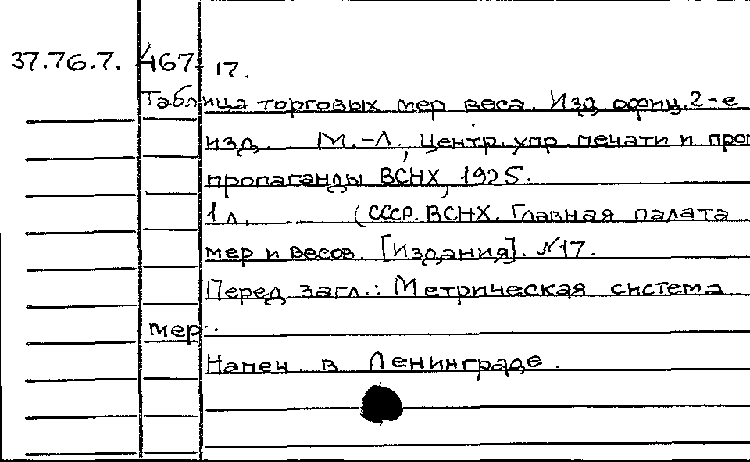 37.76.7. 467 17.
Таблица торговых мер веса. Изд. офиц. 2-е
изд. М.-Л., Центр. упр. печати и проп
пропаганды ВСНХ, 1925.
1 л. (СССР. ВСНХ. Главная палата
мер и весов. [Издания]. №17.
Перед загл.: Метрическая система
мер.
Напеч в Ленинграде.